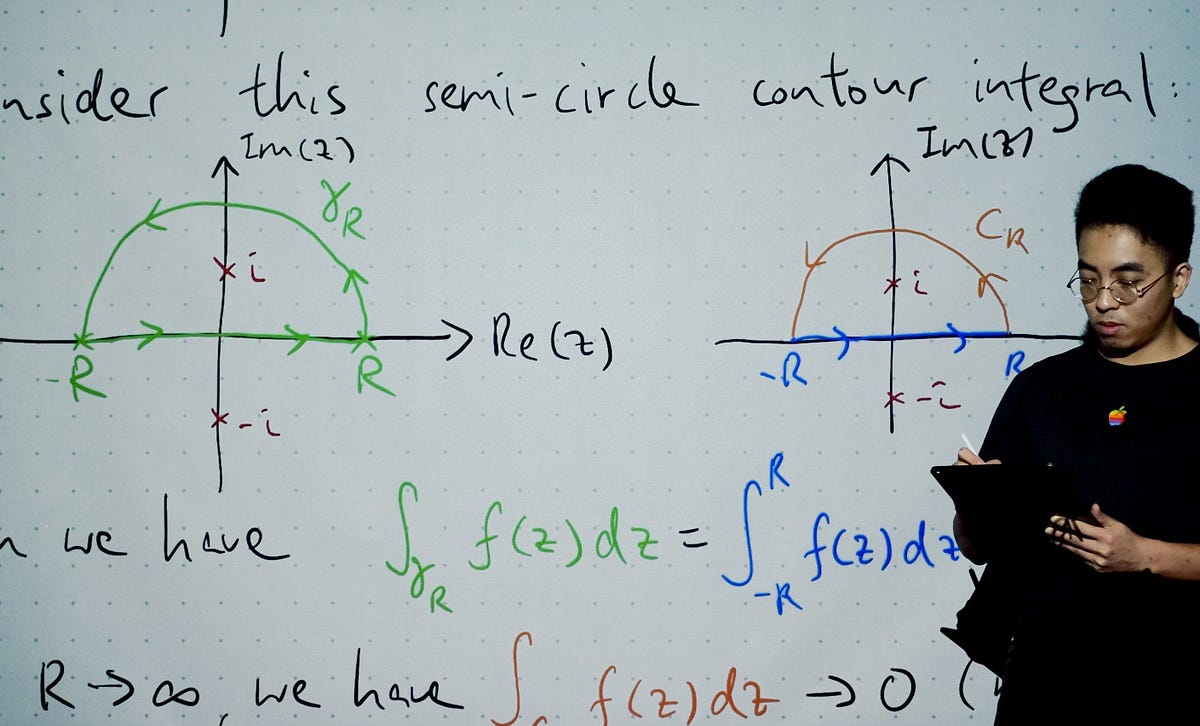 nsider this semi-circle contour integral:
Im(z) Im(z)
γR CR
i i
-R R Re(z) -R R
-i -i
n we have ∫γR f(z)dz = ∫-R^R f(z)dz
R → ∞, we have ∫ f(z)dz → 0 (